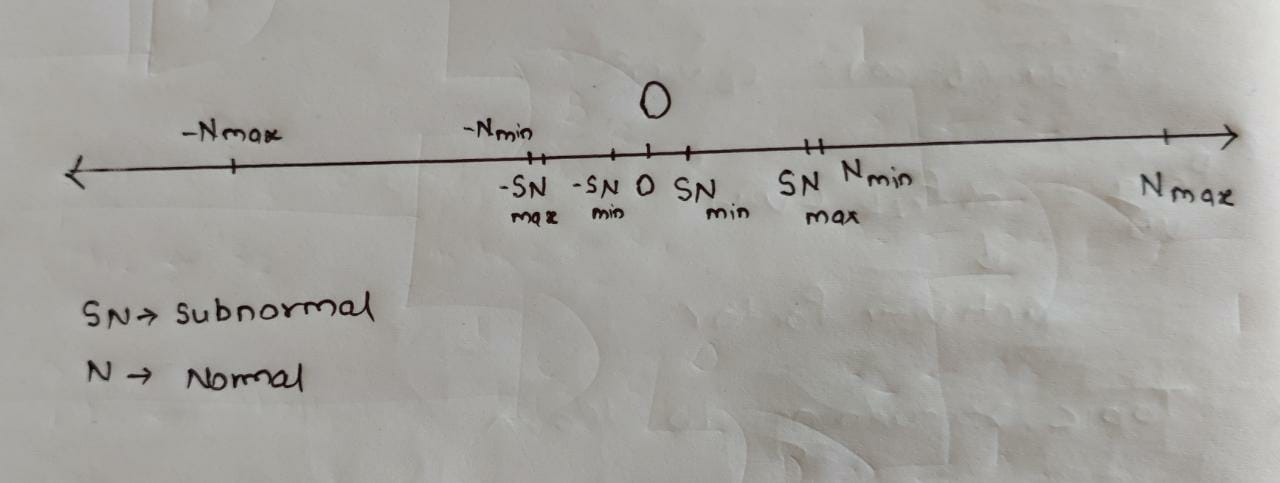 0
-Nmax -Nmin
-SN max -SN min 0 SN min SN max Nmin Nmax
SN→ Subnormal
N → Normal